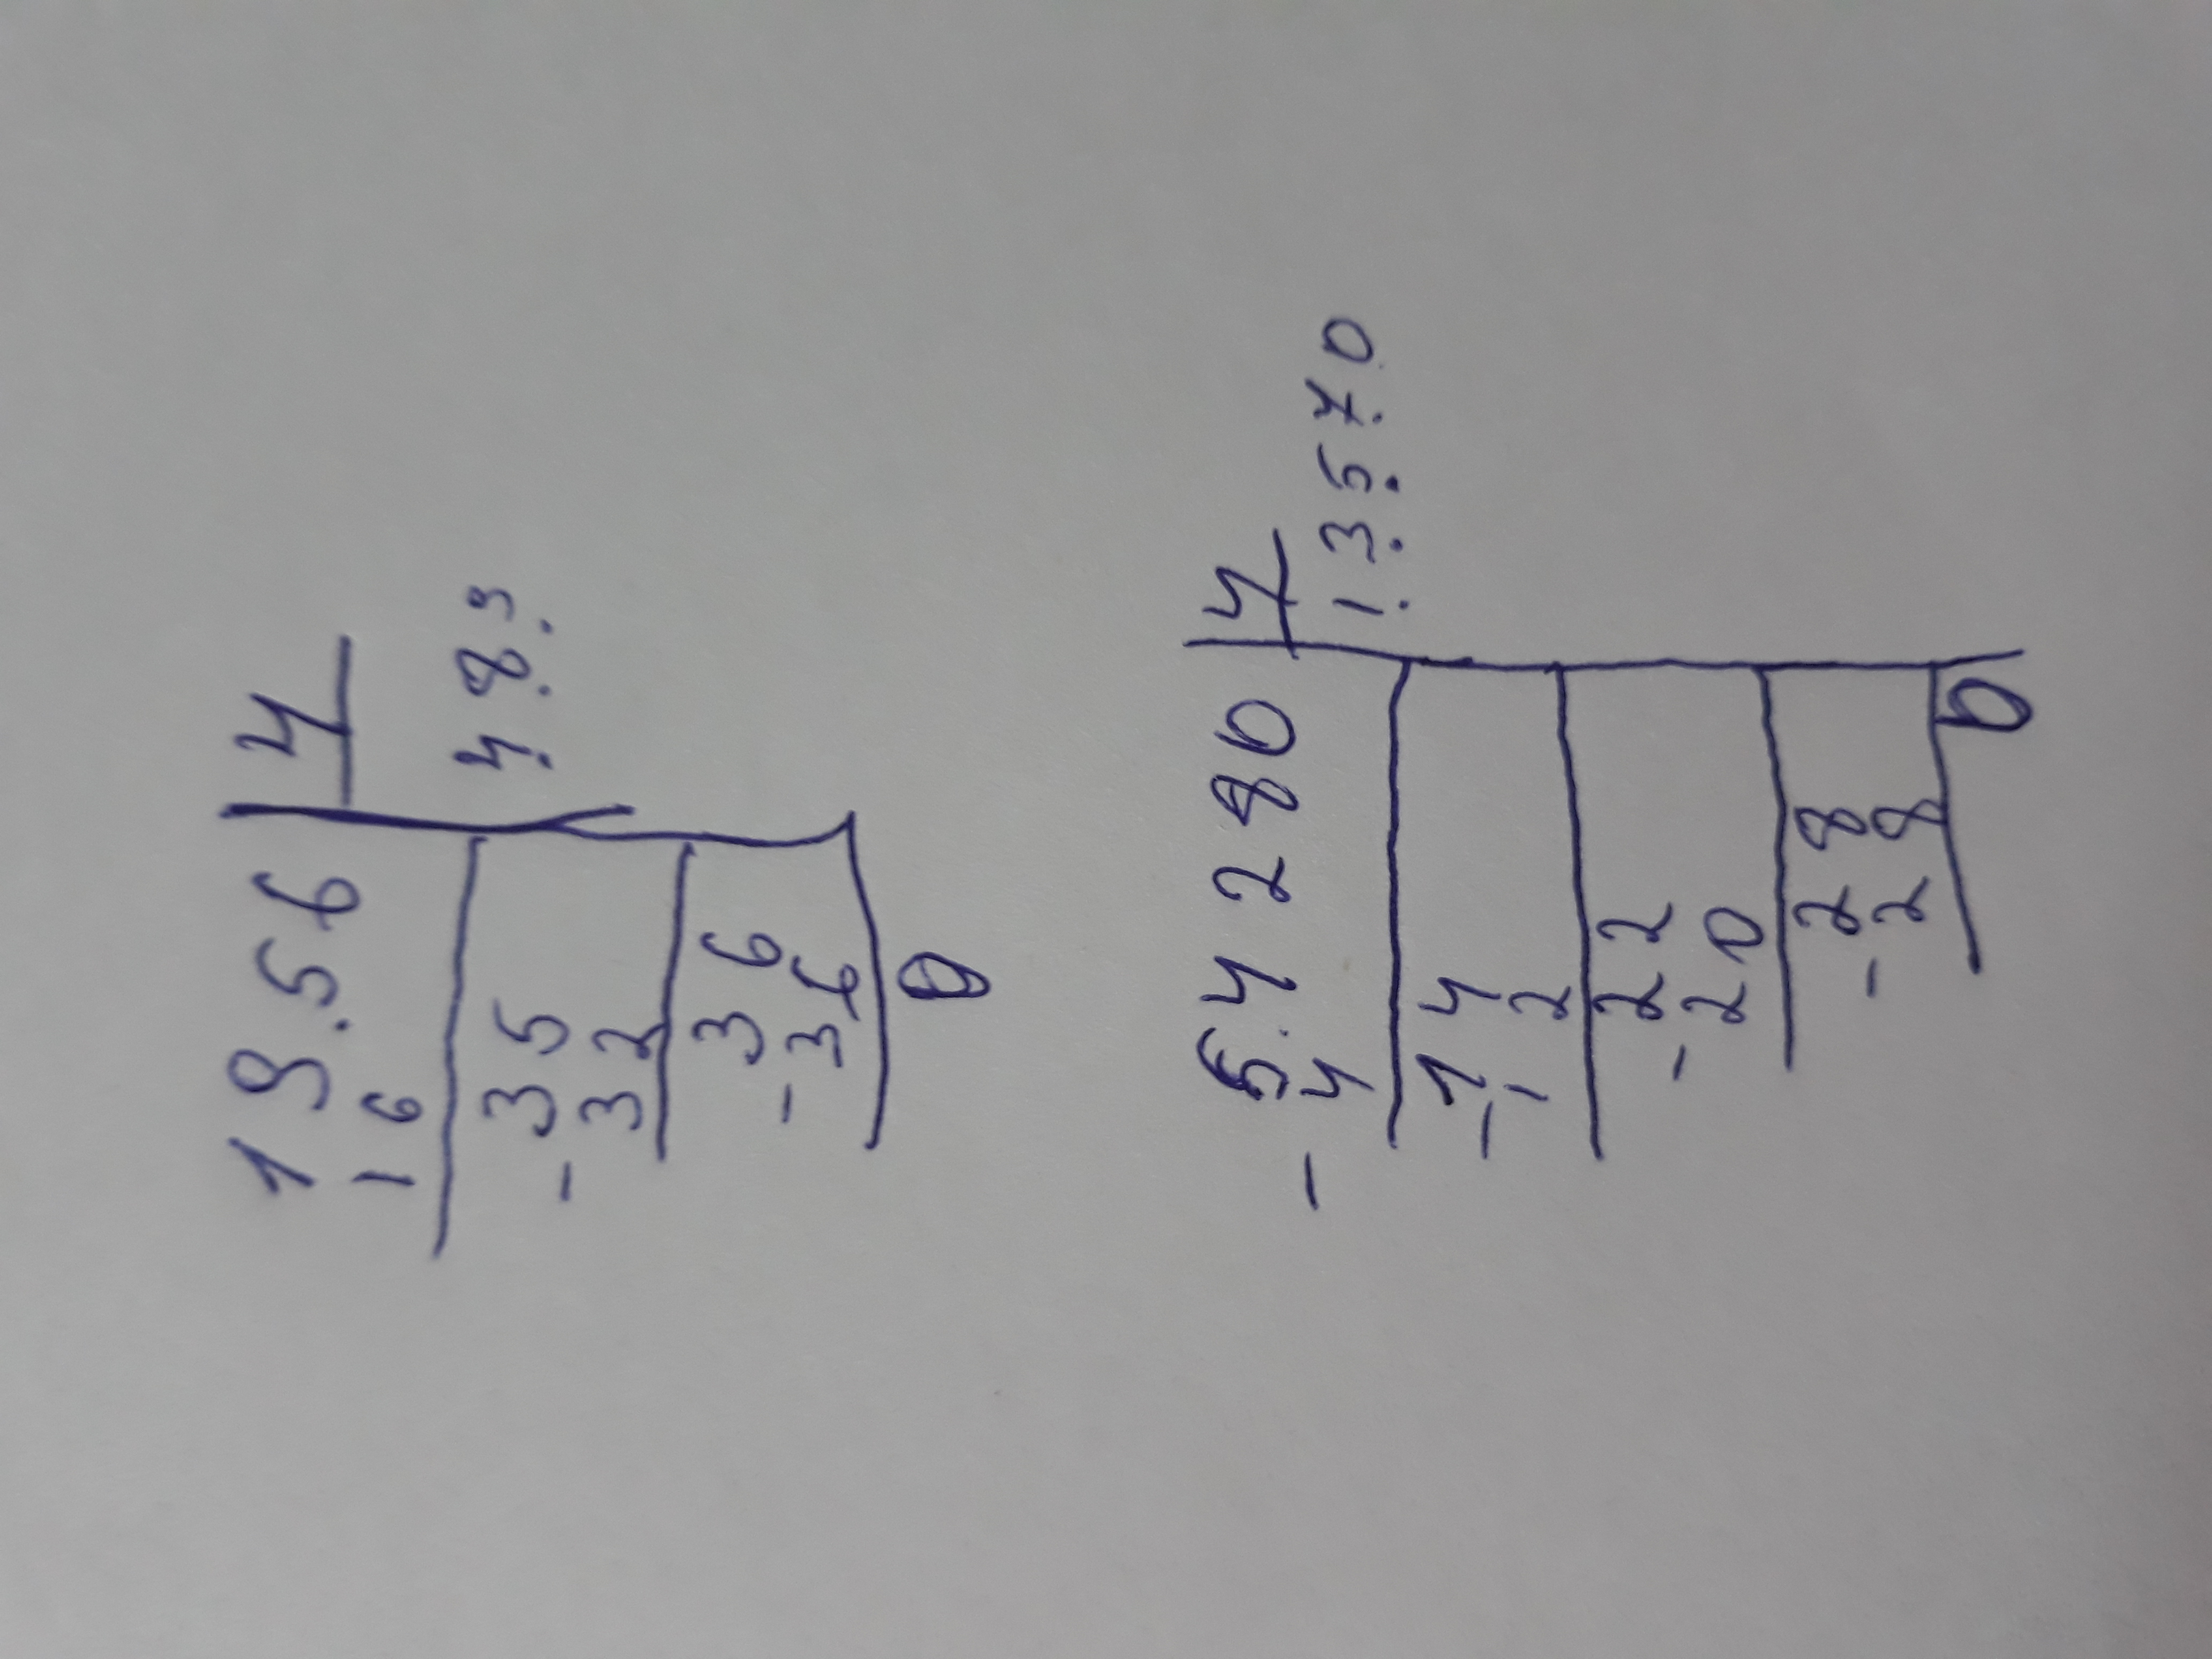 19.56 4
16 4.8.9
35
-32
36
-36
0
-5.4280 4
4 1.3.5.7.0
14
-12
22
-20
28
-28
0